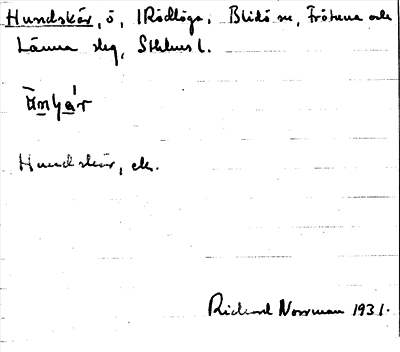 Hundskär, ö, 1 Rödlöga, Blidö sn, Frötuna och
Länna slg, Sthlms l.
Hundskär, ek.
Rickard Norrman 1931.